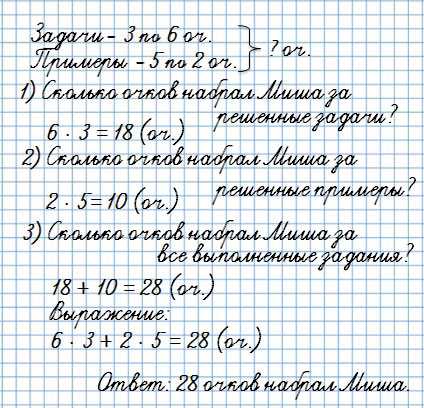 Задачи – 3 по 6 оч.
Примеры – 5 по 2 оч.
? оч.
1) Сколько очков набрал Миша за
решенные задачи?
6 · 3 = 18 (оч.)
2) Сколько очков набрал Миша за
решенные примеры?
2 · 5 = 10 (оч.)
3) Сколько очков набрал Миша за
все выполненные задания?
18 + 10 = 28 (оч.)
Выражение:
6 · 3 + 2 · 5 = 28 (оч.)
Ответ: 28 очков набрал Миша.